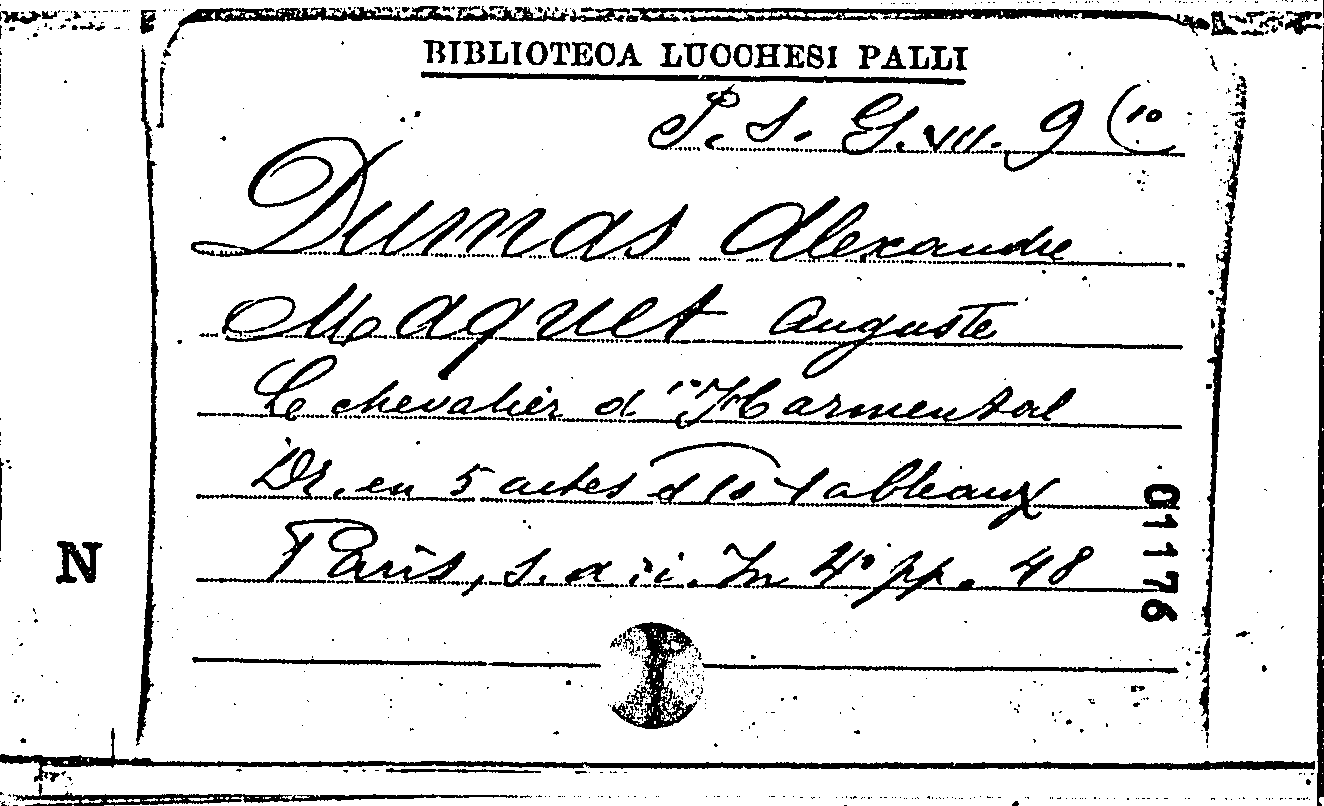 BIBLIOTECA LUCCHESI PALLI
P. S. G. VII. 9 (10
Dumas Alexandre
Maquet Auguste
Le chevalier d'Harmental
Dr. en 5 actes et 10 tableaux
Paris, s. a. i. In 4° pp. 48
01176
N